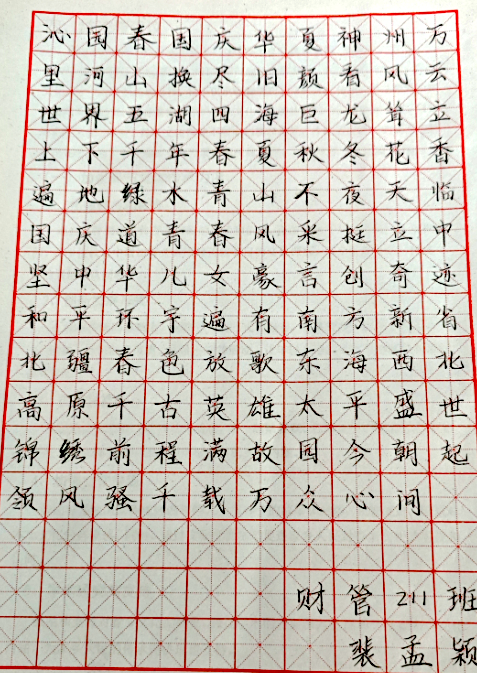 沁园春国庆华夏神州万
里河山换尽旧颜看风云
世界五湖四海巨龙耸立
上下千年春夏秋冬花香
遍地绿水青山不夜天临
国庆道青春风采挺立中
坚中华儿女豪言创奇迹
和平环宇遍有南方新省
北疆春色放歌东海西北
高原千古英雄太平盛世
锦绣前程满故园今朝起
领风骚千载万众心间
财管211班
裴孟颖